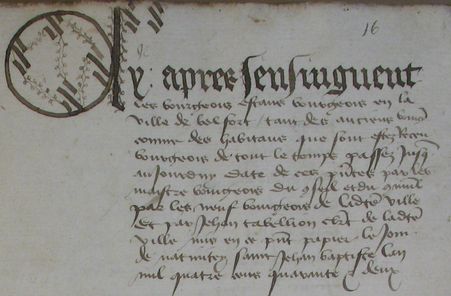 16
Cy apres sensuiguent
les bourgeois estans bourgeois en la
ville de belfort / tant des anciens
comme des habitans que sont estez Receu
bourgeois de tout le temps passez Jusq
au Jourduy date de ces pntes par les
maistre bourgeois du et du
par les neuf bourgeois de ladte ville
Et par Jehan tabellion de ladte
ville mis en ce pnt papier le Jour
de natiuitey saint Jehan baptiste lan
mil quatre cens quarante & deux